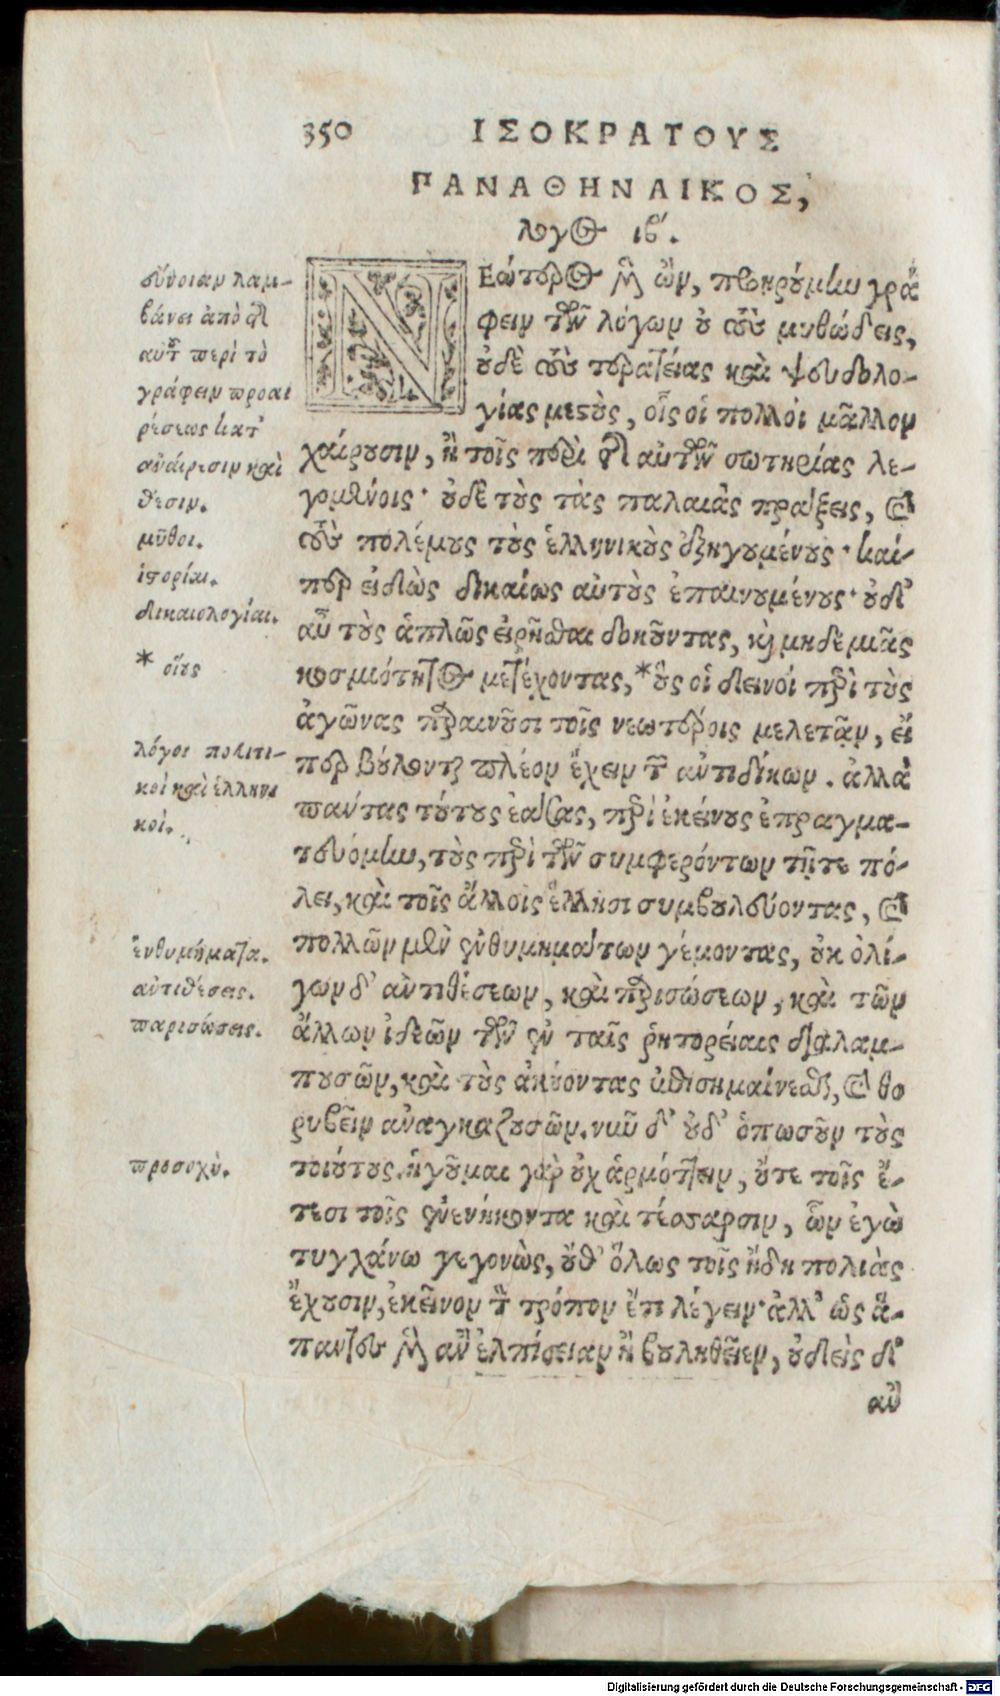 350 ΙΣΟΚΡΑΤΟΥΣ
ΠΑΝΑΘΗΝΑΙΚΟΣ,
λογος ιβʹ.
ΝΕώτερος μὲν ὢν, προῃρούμην γρά
φειν τῶν λόγων οὐ τοὺς μυθώδεις,
οὐδὲ τοὺς τερατείας καὶ ψευδολο-
γίας μεστοὺς, οἷς οἱ πολλοὶ μᾶλλον
χαίρουσιν, ἢ τοῖς περὶ τῆς αὐτῶν σωτηρίας λε-
γομένοις· οὐδὲ τοὺς τὰς παλαιὰς πράξεις, καὶ
τοὺς πολέμους τοὺς ἑλληνικοὺς ἐξηγουμένους· καί-
περ εἰδὼς δικαίως αὐτοὺς ἐπαινουμένους· οὐδ'
αὖ τοὺς ἁπλῶς εἰρῆσθαι δοκοῦντας, καὶ μηδεμιᾶς
κοσμιότητος μετέχοντας,*οὓς οἱ δεινοὶ περὶ τοὺς
ἀγῶνας παραινοῦσι τοῖς νεωτέροις μελετᾷν, εἴ
περ βούλονται πλέον ἔχειν τῶν ἀντιδίκων. ἀλλὰ
πάντας τούτους ἐάσας, περὶ ἐκείνους ἐπραγμα-
τευόμην, τοὺς περὶ τῶν συμφερόντων τῇ τε πό-
λει, καὶ τοῖς ἄλλοις ἕλλησι συμβουλεύοντας, καὶ
πολλῶν μὲν ἐνθυμημάτων γέμοντας, οὐκ ὀλί-
γων δ' ἀντιθέσεων, καὶ παρισώσεων, καὶ τῶν
ἄλλων ἰδεῶν τῶν ἐν ταῖς ῥητορείαις διαλαμ-
πουσῶν, καὶ τοὺς ἀκούοντας ἐπισημαίνεσθαι, καὶ θο
ρυβεῖν ἀναγκαζουσῶν. νῦν δ' οὐδ' ὁπωσοῦν τοὺς
τοιούτους. ἡγοῦμαι γὰρ οὐχ ἁρμόττειν, οὔτε τοῖς ἔ-
τεσι τοῖς ἐνενήκοντα καὶ τέσσαρσιν, ὧν ἐγὼ
τυγχάνω γεγονὼς, οὔθ' ὅλως τοῖς ἤδη πολιὰς
ἔχουσιν, ἐκεῖνον τὸν τρόπον ἔτι λέγειν· ἀλλ' ὡς ἅ-
παντες μὲν ἂν ἐλπίσειαν ἢ βουληθεῖεν, οὐδεὶς δ'
ἂν
σύνοιαν λαμ-
βάνει ἀπὸ τῆς
αὐτοῦ περὶ τὸ
γράφειν προαι
ρέσεως κατ'
ἀναίρεσιν καὶ
θέσιν.
μῦθοι.
ἱστορίαι.
δικαιολογίαι.
* οἵους
λόγοι πολιτι-
κοὶ καὶ ἑλληνι
κοὶ.
ἐνθυμήματα.
ἀντιθέσεις.
παρισώσεις.
προσοχὴ.
Digitalisierung gefördert durch die Deutsche Forschungsgemeinschaft - DFG